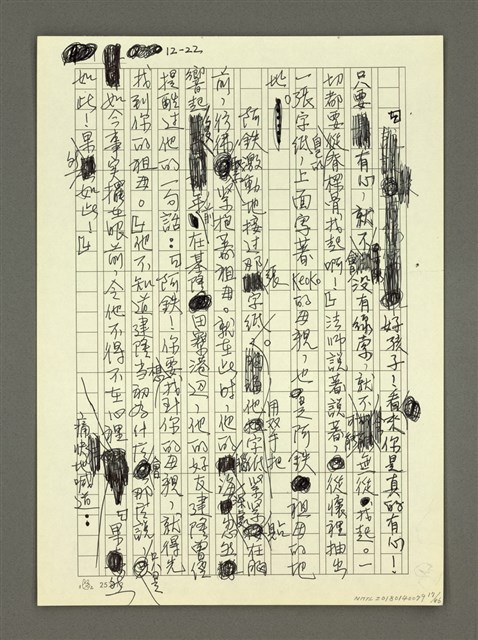 12-22
「好孩子！看來你是真的有心！
只要有心，就不會沒有線索，就不會無從找起。一
切都要從尋根著找起啊！」法師說著說著，從懷裡抽出
一張字紙，上面寫著 Keoko 的母親，也是阿鉄祖母的地
址。
阿鉄激動地接過那張字紙。他用双手把字紙緊緊貼在胸
前，彷彿緊抱著祖母。就在此時，他的腦海忽
響起前在基隆田寮港边，他的好友建隆曾經
提醒过他的一句話：「阿鉄！你要想找到你的母親，就得先
找到你的祖母。」他不知道建隆当初為什么會那麼說，只是
如今事实擺在眼前，令他不得不在心裡痛快地喊道：
「果然
如此！果如此！」
25
NMTL20180140079